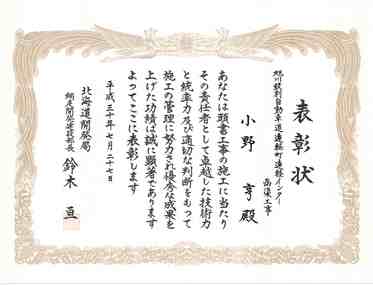 表彰状
旭川紋別自動車道遠軽町遠軽インター
改良工事
小野 亨 殿
あなたは頭書工事の施工に当たり
その責任者として卓越した技術力
と統率力及び適切な判断をもって
施工の管理に努力され優秀な成果を
上げた功績は誠に顕著であります
よってここに表彰します
平成三十年七月二十七日
北海道開発局
網走開発建設部長 鈴木 亘